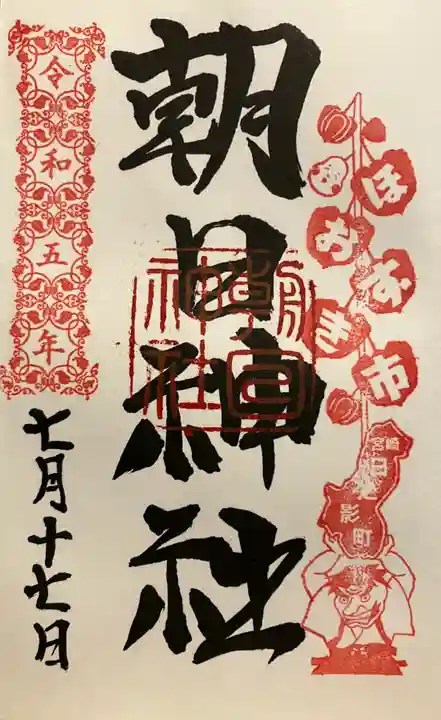 ほおずき市
宮崎
日之影町
朝日神社
朝日
神社
令和五年
七月十七日